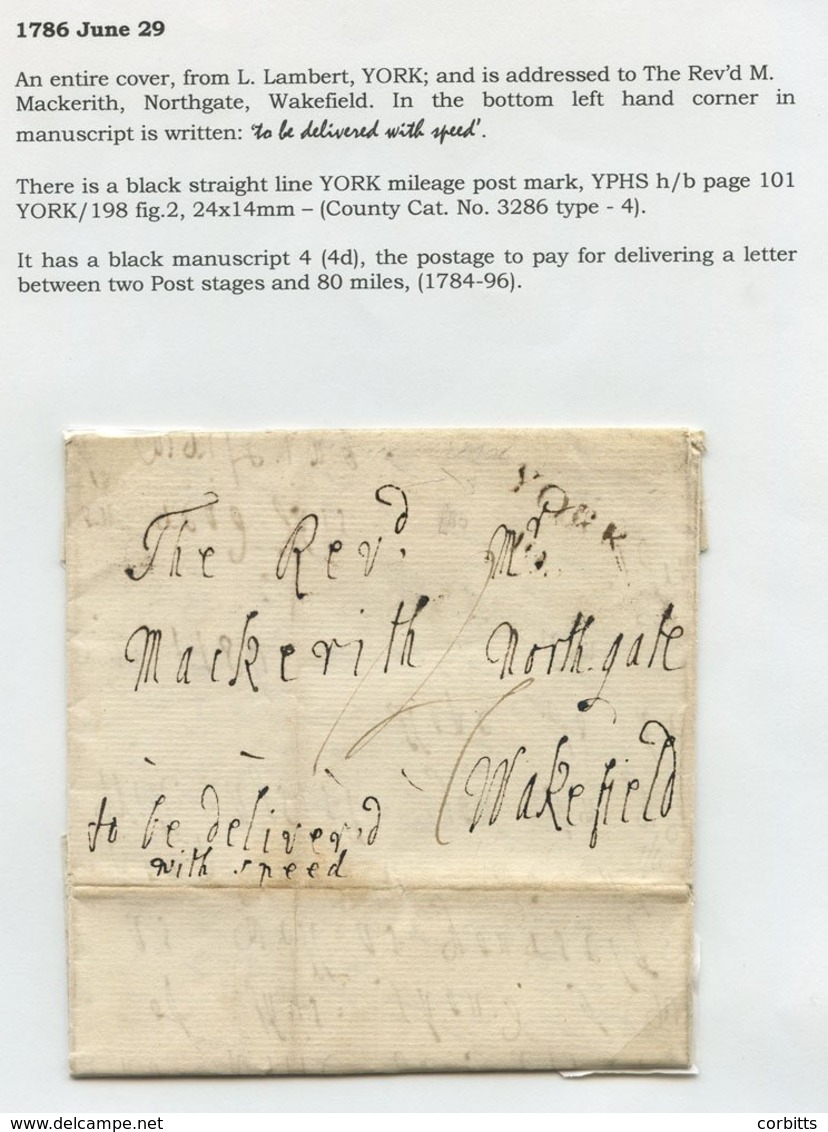 1786 June 29
An entire cover, from L. Lambert, YORK; and is addressed to The Rev'd M.
Mackerith, Northgate, Wakefield. In the bottom left hand corner in
manuscript is written: 'to be delivered with speed'.
There is a black straight line YORK mileage post mark, YPHS h/b page 101
YORK/198 fig.2, 24x14mm – (County Cat. No. 3286 type - 4).
It has a black manuscript 4 (4d), the postage to pay for delivering a letter
between two Post stages and 80 miles, (1784-96).
YORK
The Revd. Mr.
Mackerith North gate
Wakefield
to be deliver'd
with speed
www.delcampe.net
corbitts